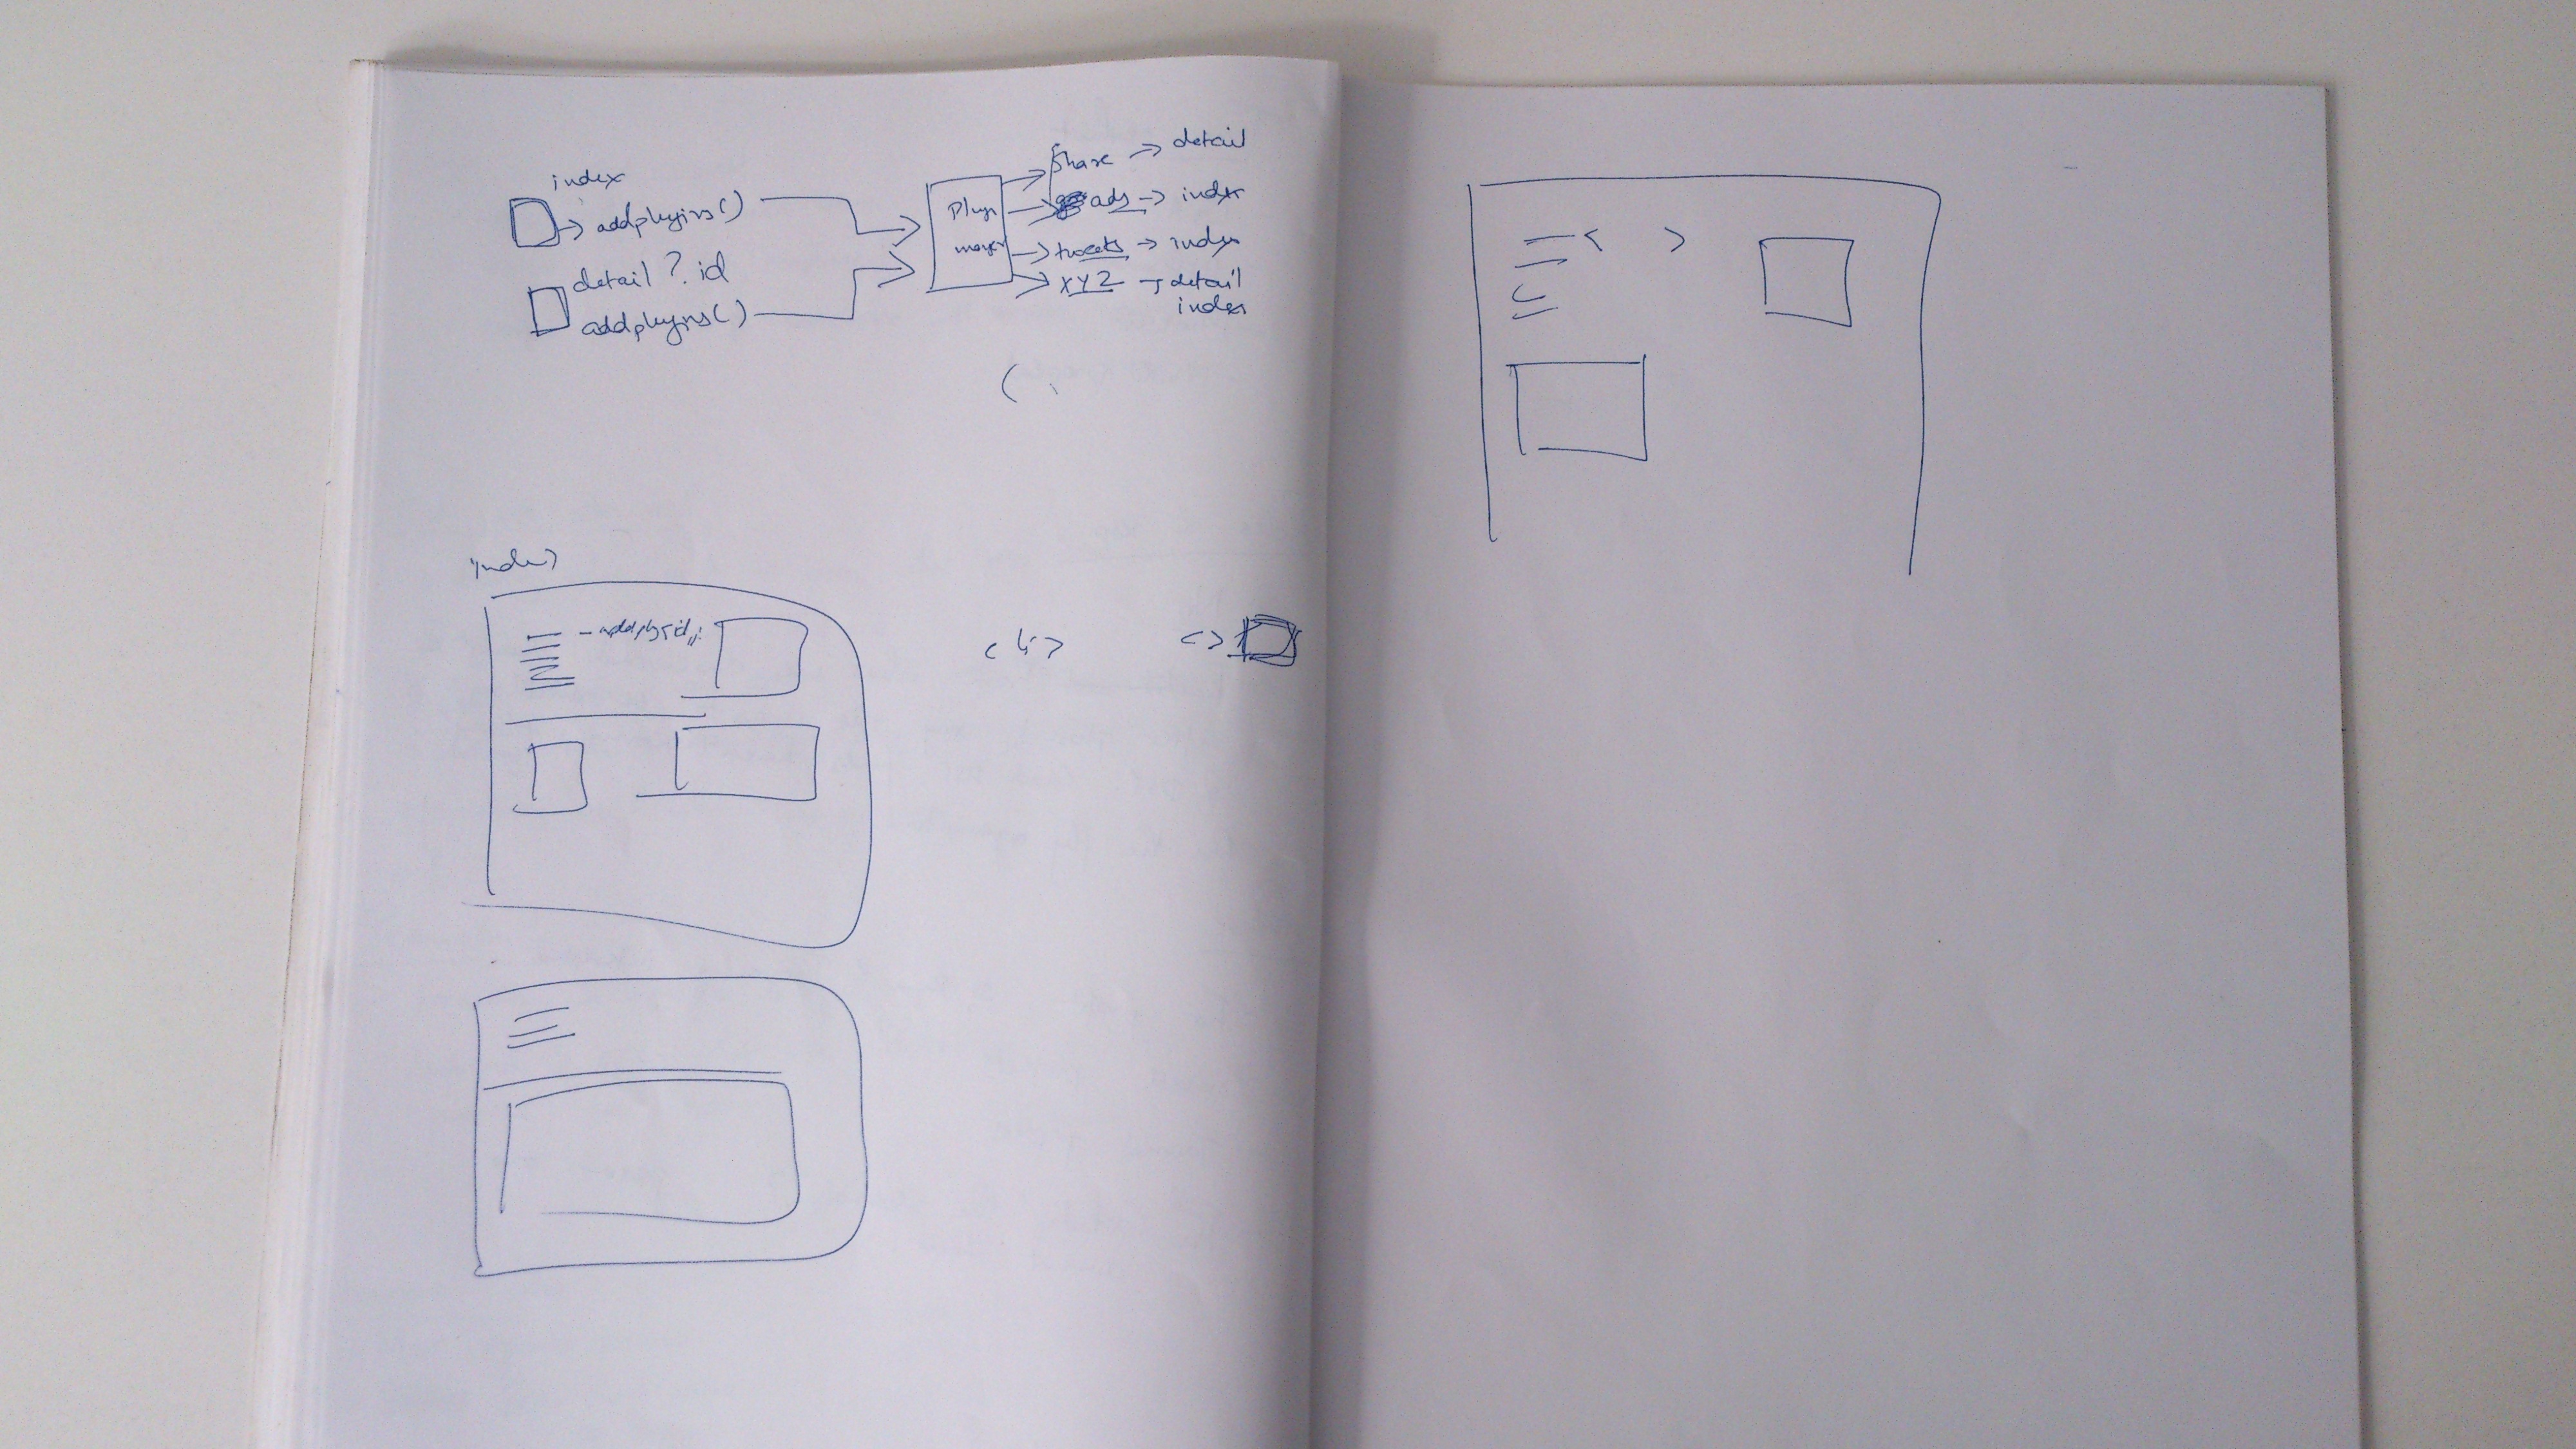 index
addplugins()
detail ? id
addplugins()
Plugn
share → detail
ads → index
tweets → index
XYZ → detail
index
index
<li>
<>
< >